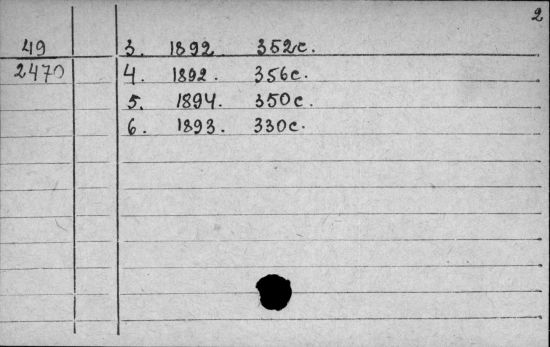 2
49 3. 1892 352с.
2470 4. 1892. 356с.
5. 1894. 350с.
6. 1893. 330с.